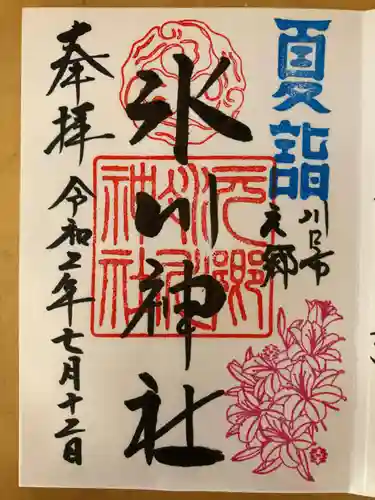 夏詣
川口市
元郷
氷川神社
元郷氷川神社
奉拝
令和二年七月十二日